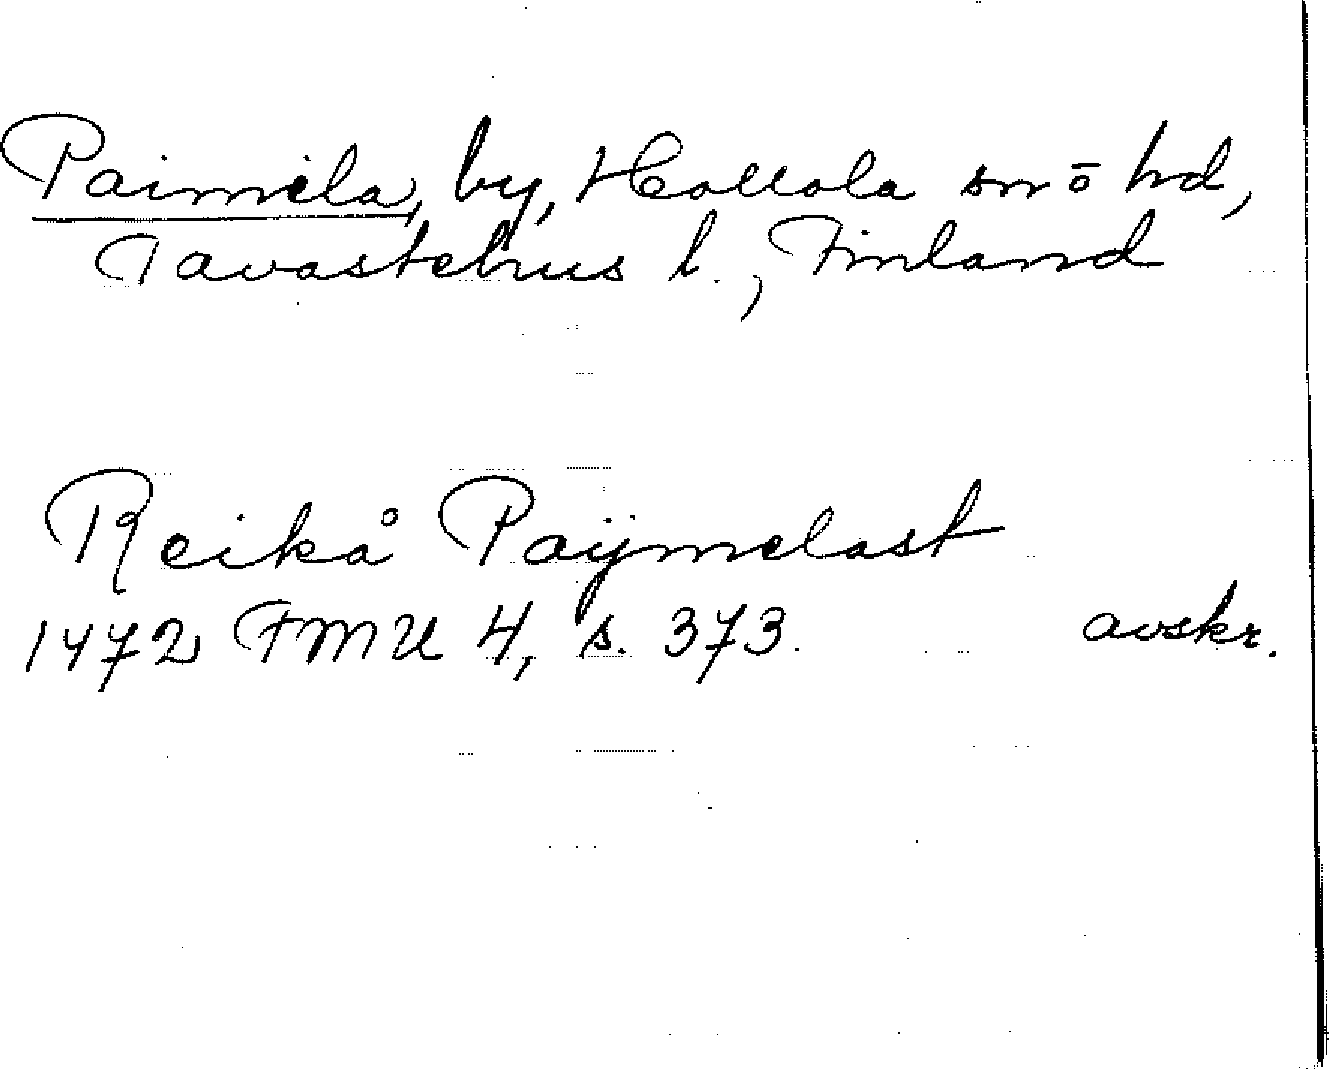 Paimela, by, Hollola sn ō hd,
Tavastehus l., Finland
Reikå Paÿmelast
1472 FMU 4, s. 373. avskr.